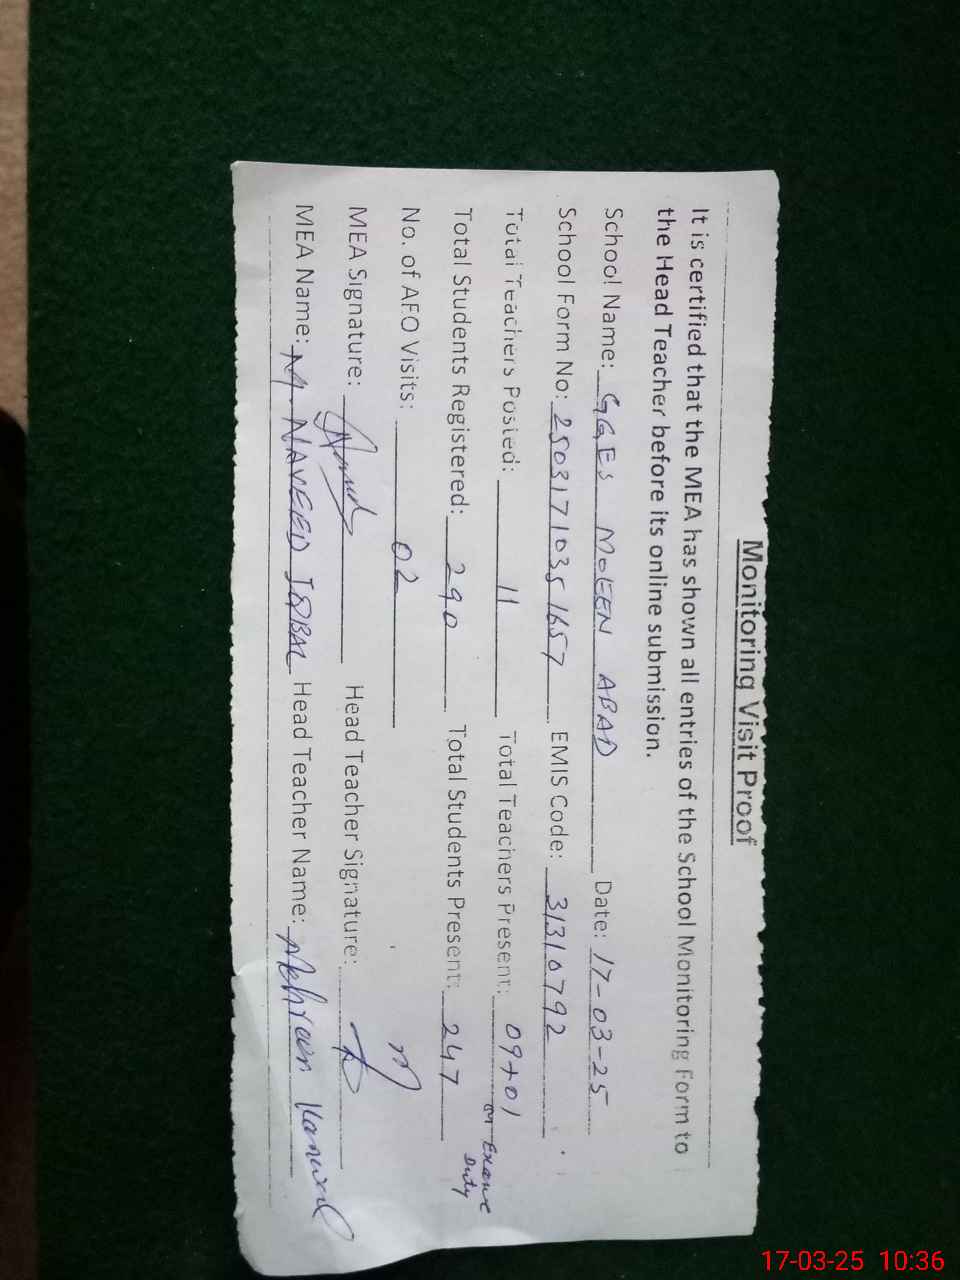 Monitoring Visit Proof
It is certified that the MEA has shown all entries of the School Monitoring Form to
the Head Teacher before its online submission.
School Name: GGES MOEEN ABAD Date: 17-03-25
School Form No: 2503171035 1657 EMIS Code: 31310792
Total Teachers Posted: 11 Total Teachers Present: 09+01
on Exam Duty
Total Students Registered: 290 Total Students Present: 247
No. of AEO Visits: 02
MEA Signature: Head Teacher Signature:
MEA Name: M NAVEED IQBAL Head Teacher Name: Mehreen Kanwal
17-03-25 10:36